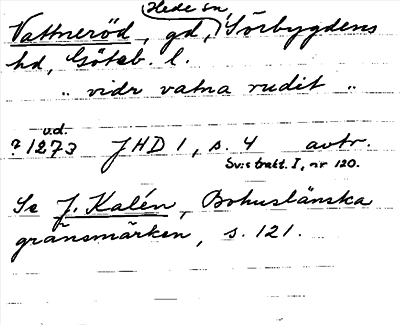 Hede sn,
Vattneröd, gd, Sörbygdens
hd, Göteb. l.
" vidr vatna rudit "
u.d.
? 1273 JHD 1, s. 4 avtr.
Sv:s trakt. I, nr 120.
Se J. Kalén, Bohuslänska
gränsmärken, s. 121.